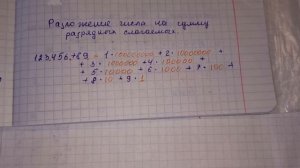 Разложение числа на сумму
разрядных слагаемых.
123,456,789 = 1·100000000 + 2·10000000 +
+ 3·1000000 + 4·100000 +
+ 5·10000 + 6·1000 + 7·100 +
+ 8·10 + 9·1